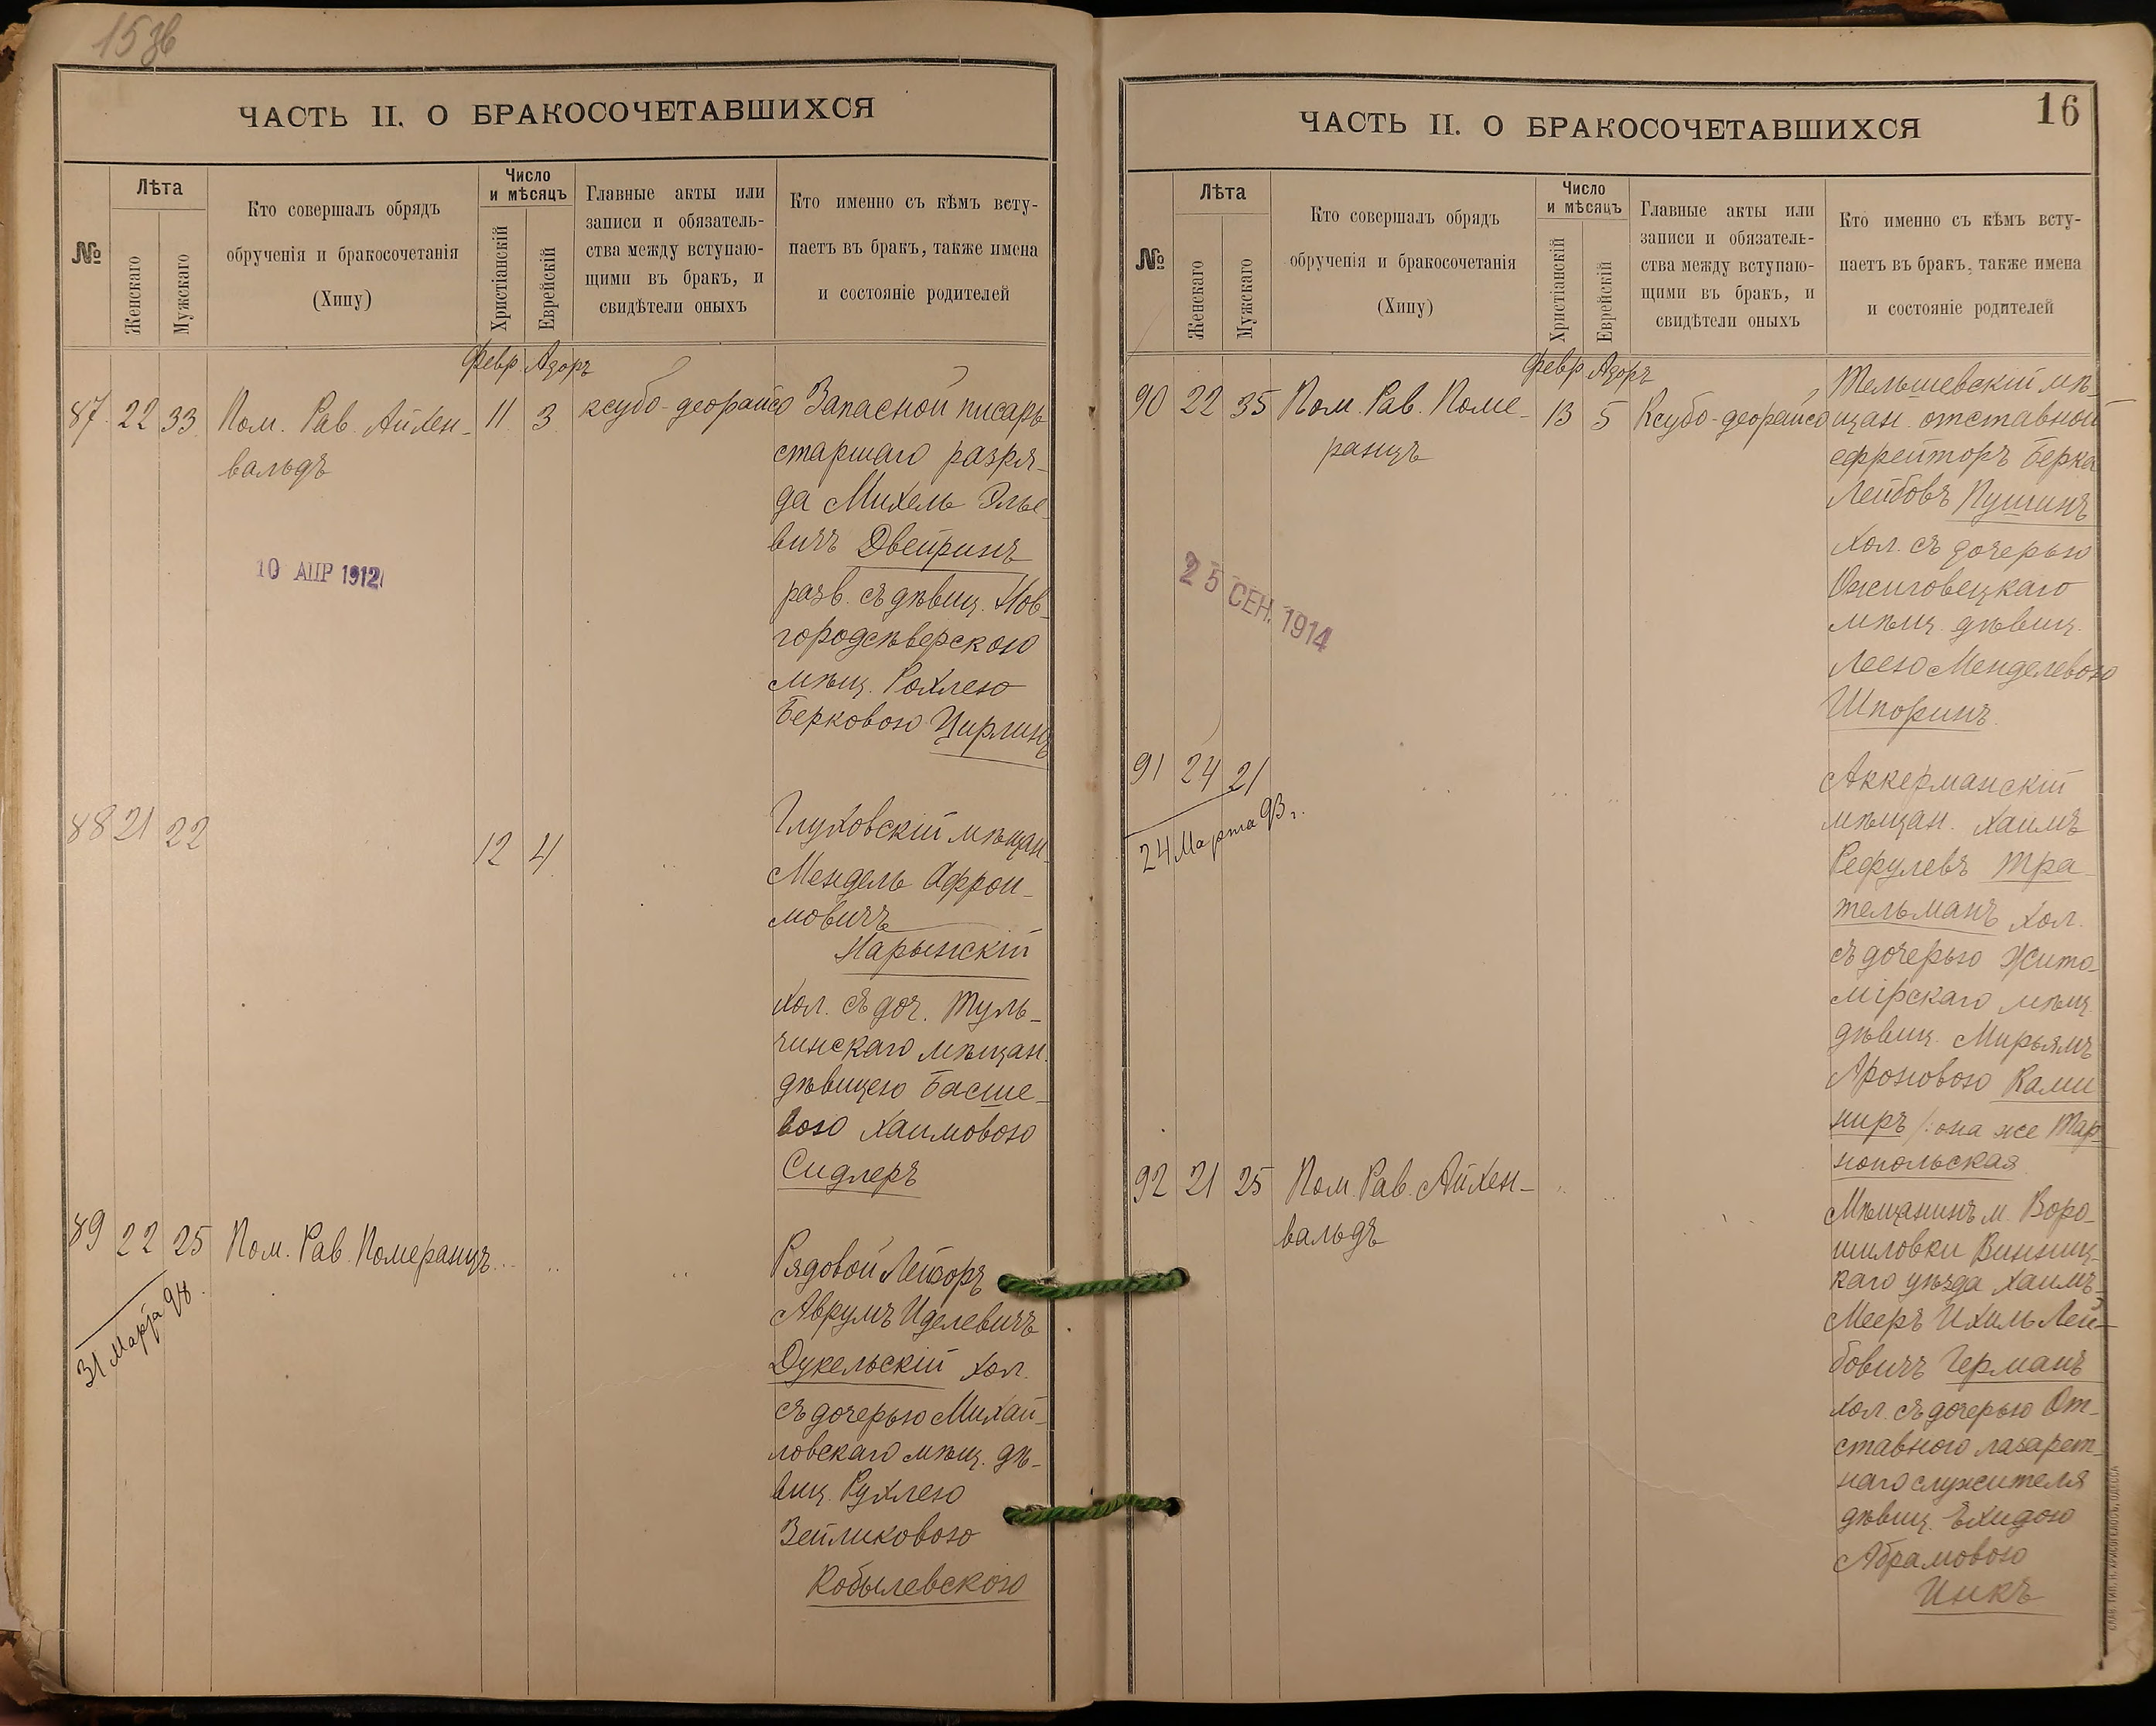 15 зв
ЧАСТЬ II. О БРАКОСОЧЕТАВШИХСЯ
№
Лѣта
Женскаго
Мужскаго
Кто совершалъ обрядъ
обрученія и бракосочетанія
(Хипу)
Число
и мѣсяцъ
Христіанскій
Еврейскій
Главные акты или
записи и обязатель-
ства между вступаю-
щими въ бракъ, и
свидѣтели оныхъ
Кто именно съ кѣмъ всту-
паетъ въ бракъ, также имена
и состояніе родителей
Февр Адоръ
87. 22 33. Пом. Рав. Айхен-
вальдъ
11. 3.
ксубо-деорайсо
Запасной писарь
старшаго разря-
да Михель Элье-
вичъ Двейринъ
разв. съ дѣвиц. Нов-
городсѣверскою
мѣщ. Рохлею
Берковою Цирлинъ
10 АПР 1912
88 21 22
12 4.
Глуховскій мѣщан.
Мендель Афрои-
мовичъ
Нарынскій
хол. съ доч. Туль-
чинскаго мѣщан.
дѣвицею Басше-
вою Хаимовою
Сидлеръ
89 22 25 Пом. Рав. Померанцъ
31 Марта 98.
Рядовой Лейзоръ
Аврумъ Иделевичъ
Дукельскій хол.
съ дочерью Михай-
ловскаго мѣщ. дѣ-
виц. Рухлею
Зейликовою
Кобылевскою
16
ЧАСТЬ II. О БРАКОСОЧЕТАВШИХСЯ
№
Лѣта
Женскаго
Мужскаго
Кто совершалъ обрядъ
обрученія и бракосочетанія
(Хипу)
Число
и мѣсяцъ
Христіанскій
Еврейскій
Главные акты или
записи и обязатель-
ства между вступаю-
щими въ бракъ, и
свидѣтели оныхъ
Кто именно съ кѣмъ всту-
паетъ въ бракъ, также имена
и состояніе родителей
Февр Адоръ
90 22 35 Пом. Рав. Поме-
ранцъ
13 5 Ксубо-деорайсо
Тельшевскій мѣ-
щан. отставной
ефрейторъ Берка
Лейбовъ Пушинъ
хол. съ дочерью
Ожиговецкаго
мѣщ. дѣвиц.
Леею Менделевою
Шпоринъ.
25 СЕН. 1914
91 24 21
24 Марта 93 г.
Аккерманскій
мѣщан. Хаимъ
Рефулевъ Тра-
тельманъ хол.
съ дочерью Жито-
мірскаго мѣщ.
дѣвиц. Мирьямъ
Ароновою Ками-
ниръ /: она же Тар-
нопольская
92 21 25 Пом. Рав. Айхен-
вальдъ
Мѣщанинъ м. Воро-
шиловки Винниц-
каго уѣзда Хаимъ-
Мееръ Ихиль Лей-
бовичъ Германъ
хол. съ дочерью От-
ставного лазарет-
наго служителя
дѣвиц. Ехидою
Абрамовою
Инкъ